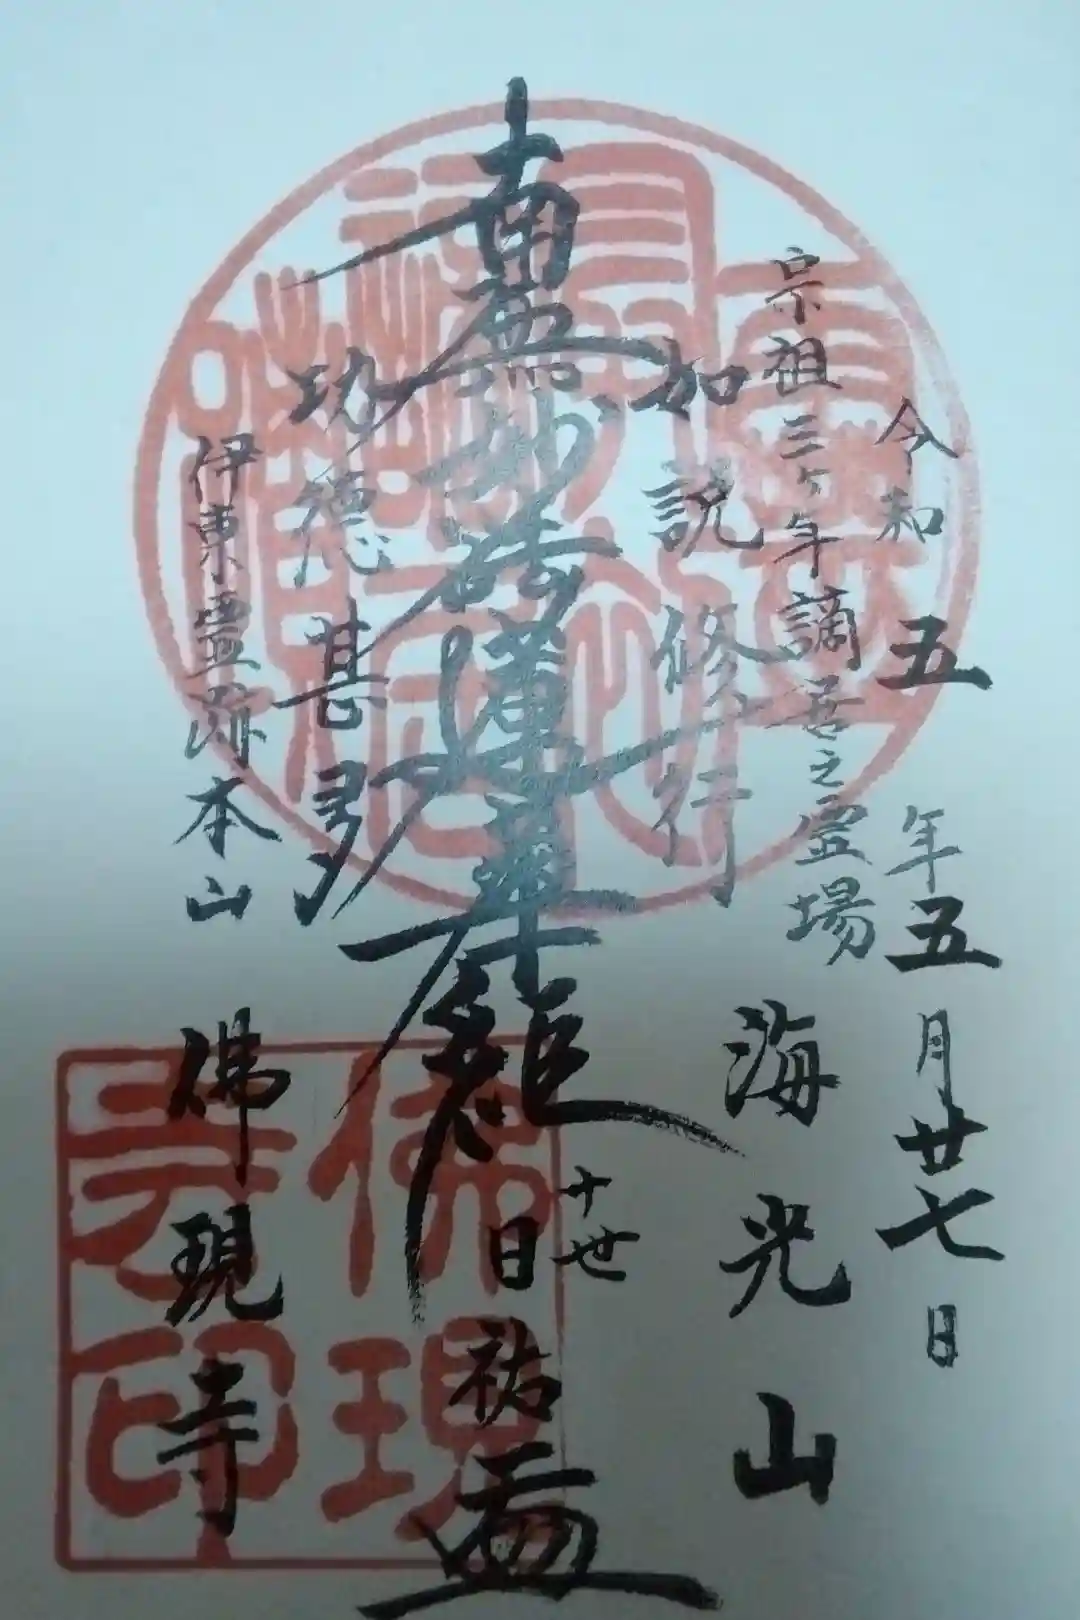 令和五年五月廿七日
宗祖三ヶ年謫居之霊場
海光山
如説修行
南無妙法蓮華経
十世
日祐
功徳甚多
伊東霊跡本山
佛現寺
佛現
寺印